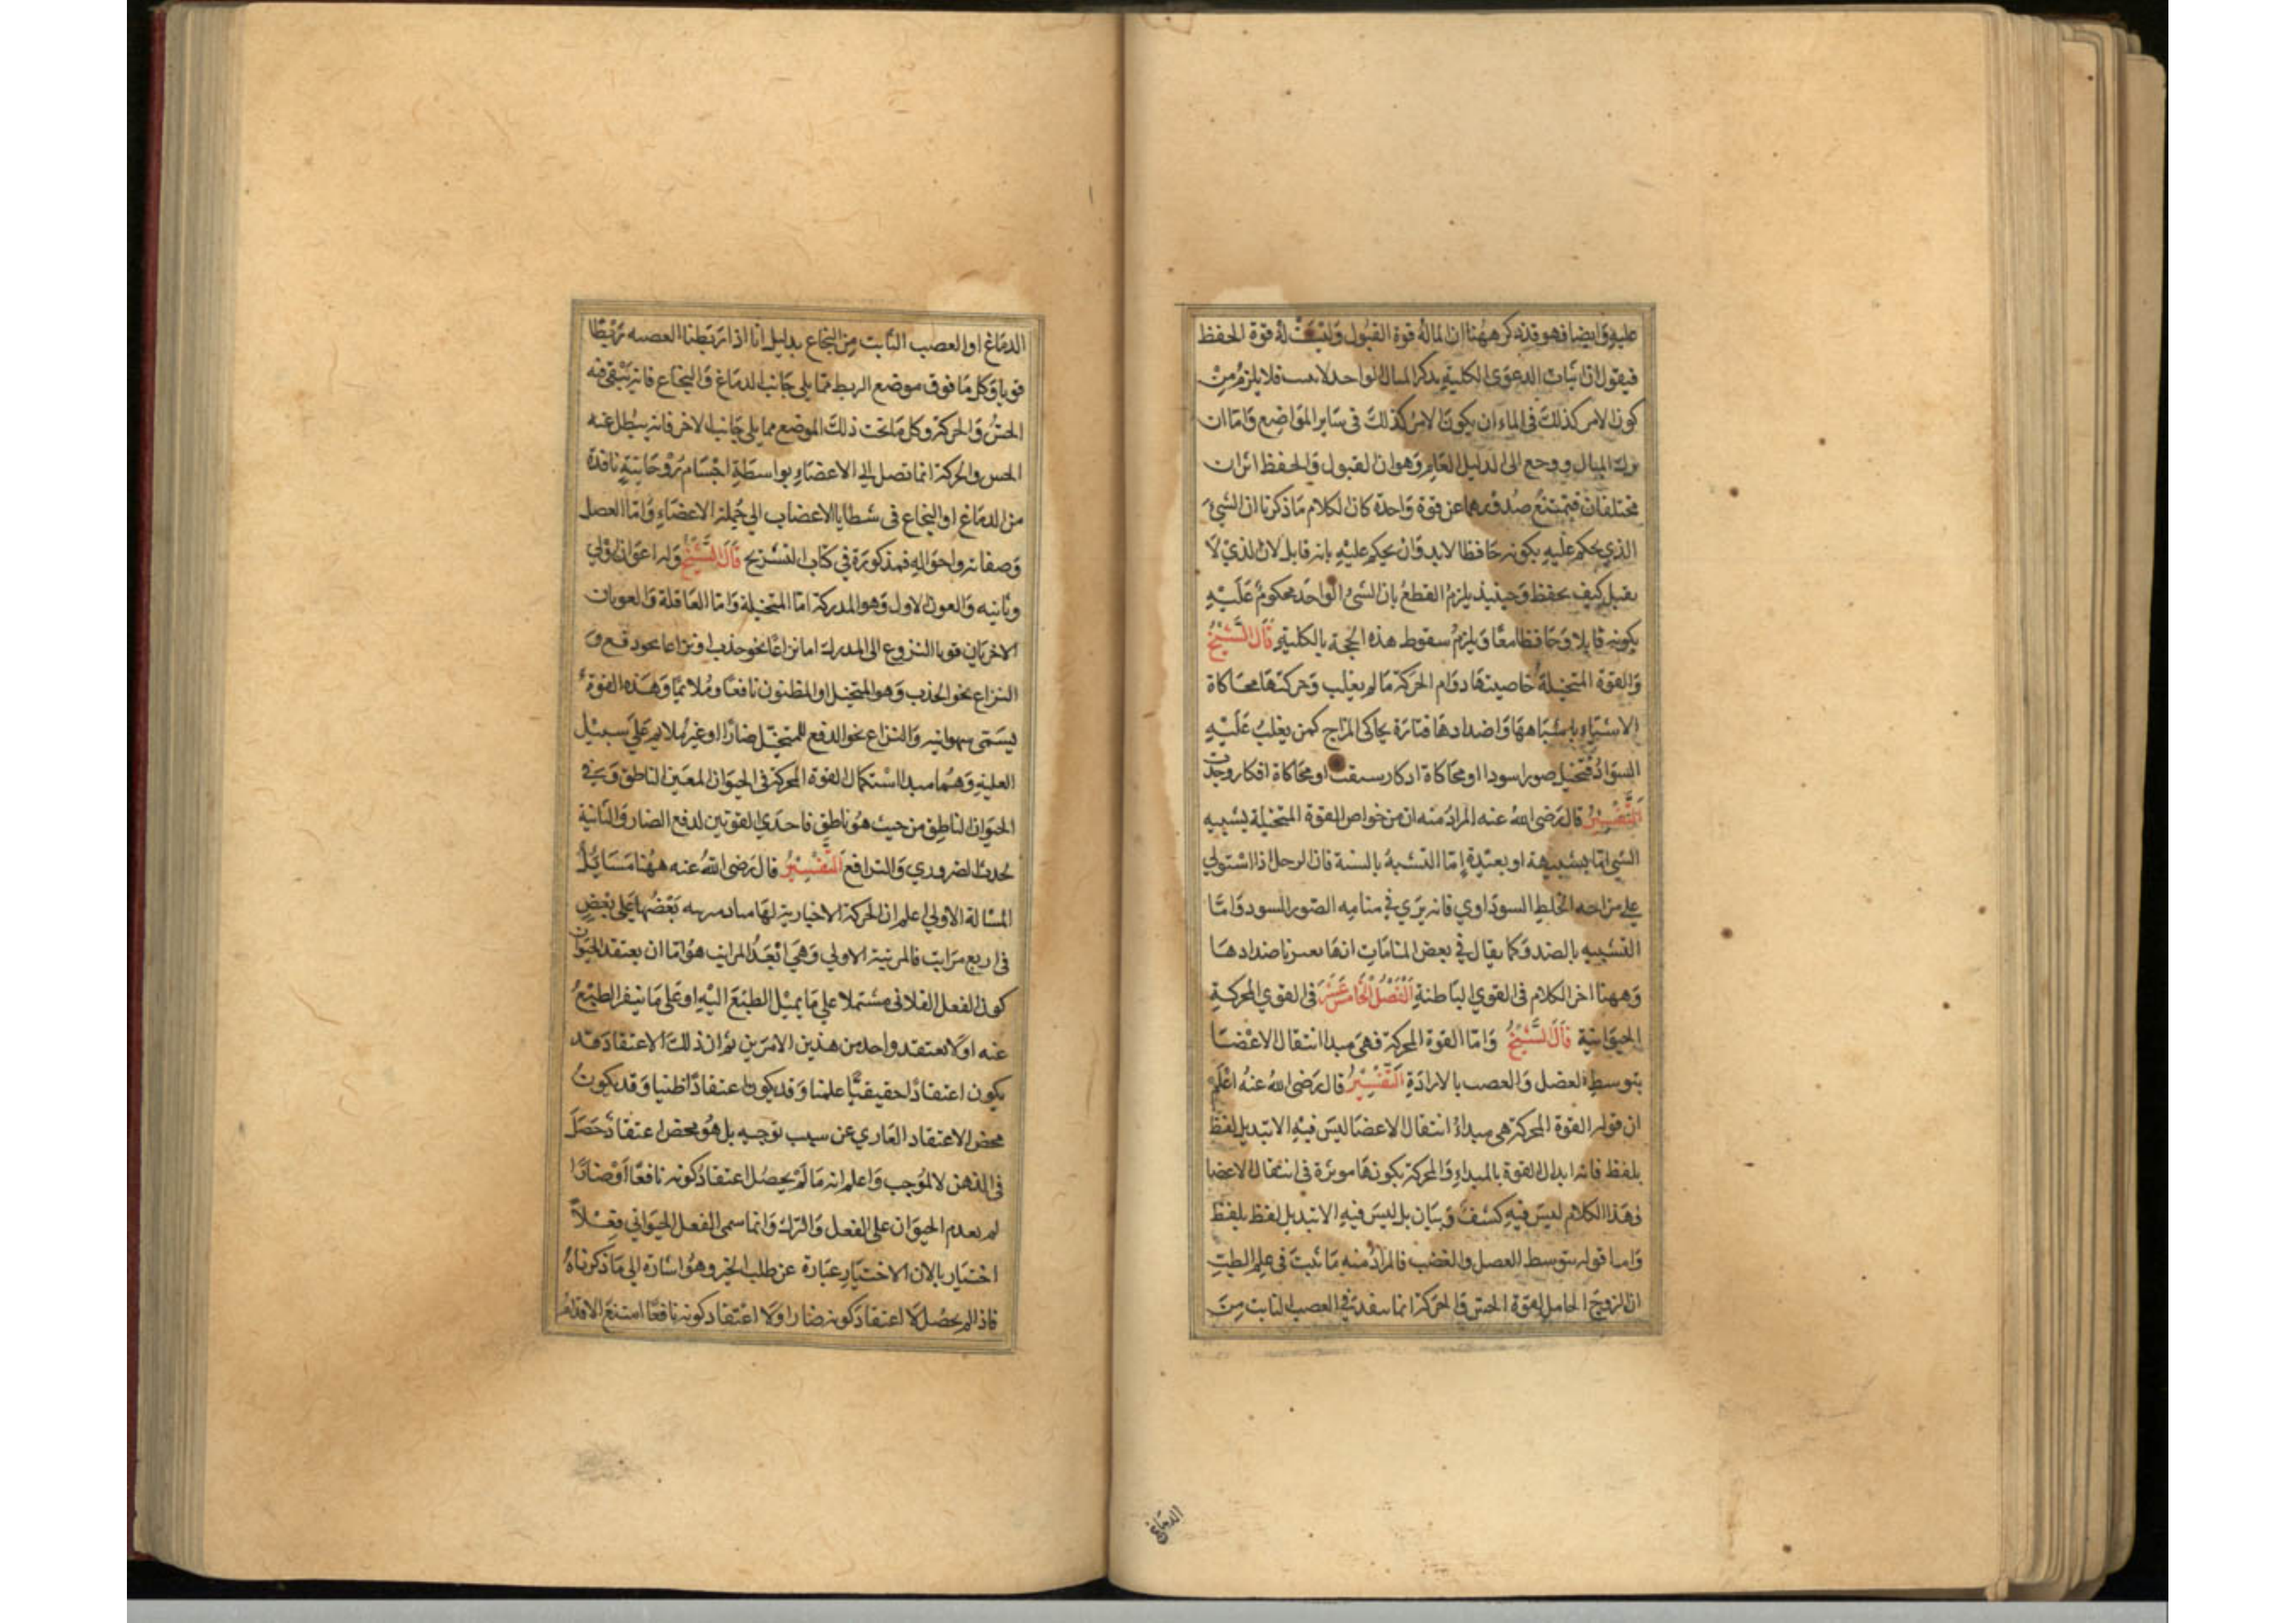 عليه وايضا فهو قد ذكر ههنا ان لما له قوة القبول وليست له قوة الحفظ
فيقول ان اثبات الدعوى الكلية بذكر المثال الواحد لا فلا يلزم من
كون الامر كذلك في الماء ان يكون الامر كذلك في ساير المواضع واما ان
ترك المثال ورجع الى الدليل العام وهو ان القبول والحفظ اثران
مختلفان فيمتنع صدورهما عن قوة واحدة كان الكلام ما ذكرنا ان الشيء
الذي يحكم عليه بكونه حافظا لابد وان يحكم عليه بانه قابل لان الذي لا
يقبل كيف يحفظ وحينيذ يلزم القطع بان الشئ الواحد محكوم عليه
بكونه قابلا وحافظا معا ويلزم سقوط هذه الحجة بالكلية قال الشيخ
والقوة المتخيلة خاصيتها دوام الحركة ما لم يغلب وحركتها محاكاة
الاشياء باشباهها واضدادها فتارة يحاكى المزاج كمن يغلب عليه
السواد فتخيل صورا سودا او محاكاة اذكار سبقت او محاكاة افكار وجدت
التفسير قال رضى الله عنه المراد منه ان من خواص القوة المتخيلة يشبيه
الشي اما بشبيهة او بضده اما التشبة بالسنة فان الرجل اذا استولي
علي مزاجه الخلط السوداوي فانه يري في منامه الصور السود واما
التشبيه بالضد فكما يقال في بعض المنامات انها تعبر باضدادها
وههنا اخر الكلام فى القوي الباطنة الفصل الخامس عشر فى القوي المحركة
الحيوانية قال الشيخ واما القوة المحركة فهى مبدا انتقال الاعضا
بتوسط العضل والعصب بالارادة التفسير قال رضى الله عنه اعلم
ان قوله القوة المحركة هى مبداء انتقال الاعضا ليس فيه الا تبديل لفظ
بلفظ فانه ابدال القوة بالمبداء والمحركة بكونها موثرة فى انتقال الاعضا
وهذا الكلام ليس فيه كشف وبيان بل ليس فيه الا تبديل لفظ بلفظ
واما قوله بتوسط العصل والعضب فالمراد منه ما ثبت فى علم الطب
ان الروح الحامل لقوة الحس والحركة انما ينفد في العصب النابت من
الدماغ
الدماغ او العصب النابت من النخاع بدليل انا اذا ربطنا العصبه ربطا
قويا وكل ما فوق موضع الربط مما يلى جانب الدماغ والنخاع فانه يبقى فيه
الحس والحركة وكل ما تحت ذلك الموضع مما يلى جانب الاخر فانه يبطل عنه
الحس والحركة انما تصل الى الاعضاء بواسطة اجسام روحانية نافدة
من الدماغ او النخاع فى شظايا الاعضاب الي جملة الاعضاء واما العصل
وصفاته واحواله فمذكورة في كتاب التشريح قال الشيخ وله اعوان اولي
وثانيه والعون الاول وهو المدركة اما المتخيلة واما العاقلة والعونان
الاخريان قوتا النزوع الى المدرك اما نزاعا نحو جذب او نزاعا نحو دفع و
النزاع نحو الجذب وهو المتخيل او المظنون نافعا وملائما وهذه القوة
يسمى شهوانيه والنزاع نحو الدفع للمتخيل ضارا او غير ملايم على سبيل
الغلبة وهما مبدا استكمال القوة المحركة فى الحيوان المعين الناطق وفي
الحيوان الناطق من حيث هو ناطق فاحدي القوتين لدفع الضار والثانية
لجذب الضروري والنافع التفسير قال رضى الله عنه ههنا مسايل
المسالة الاولي اعلم ان الحركة الاختيارية لها مباد مرتبه بعضها على بعض
فى اربع مراتب فالمرتبة الاولي وهي ابعد المراتب هو اما ان يعتقد الحيوان
كون الفعل الفلانى مشتملا علي ما يميل الطبع اليه او على ما ينفر الطبع
عنه او لا يعتقد واحد من هذين الامرين ثم ان ذلك الاعتقاد قد
يكون اعتقادا حقيقيا علميا وقد يكون اعتقادا ظنيا وقد يكون
محض الاعتقاد العاري عن سبب توجبه بل هو محض اعتقاد حصل
في الذهن لا لموجب واعلم انه ما لم يحصل اعتقاد كونه نافعا او ضارا
لم يقدم الحيوان على الفعل والترك وانما سمى الفعل الحيواني فعلا
اختياريا لان الاختيار عبارة عن طلب الخير وهو اشارة الى ما ذكرناه
فاذا لم يحصل لا اعتقاد كونه ضارا ولا اعتقاد كونه نافعا امتنع الاقدام